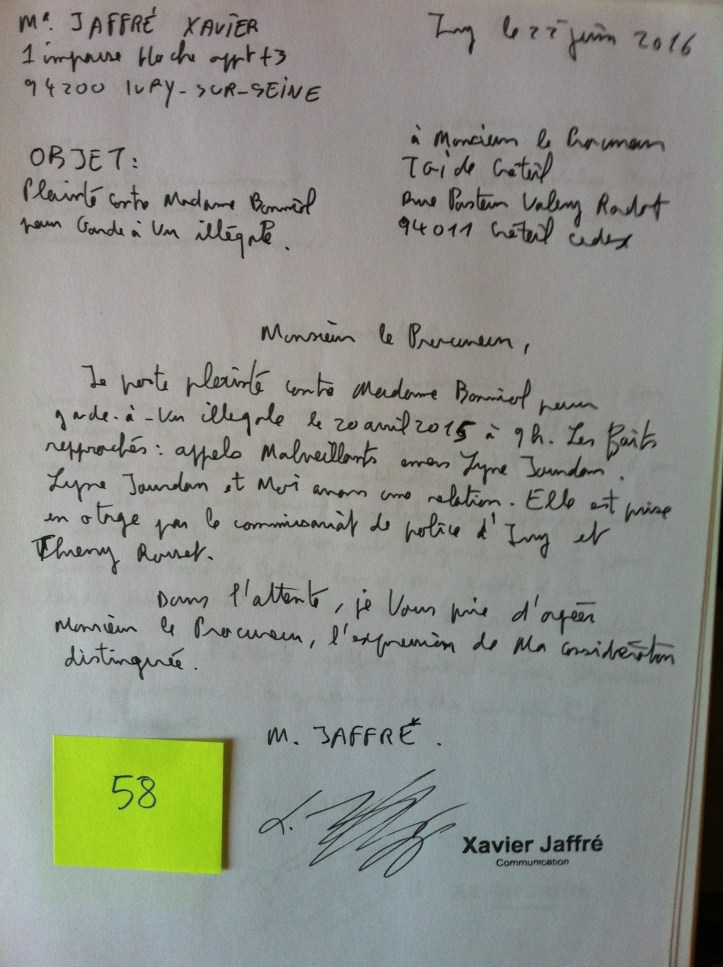 Mr. JAFFRÉ XAVIER
1 impasse Hoche appt 43
94200 IVRY-SUR-SEINE
Ivry le 22 juin 2016
à Monsieur le Procureur
TGI de Créteil
Rue Pasteur Valery Radot
94011 Créteil cedex
OBJET:
Plainte contre Madame Bonniol
pour Garde à Vue illégale.
Monsieur le Procureur,
Je porte plainte contre Madame Bonniol pour
garde-à-Vue illégale le 20 avril 2015 à 9h. Les Faits
repprochés: appels Malveillants envers Lyne Jourdan.
Lyne Jourdan et Moi avons une relation. Elle est prise
en otage par le commissariat de police d'Ivry et
Thierry Rouret.
Dans l'attente, je Vous prie d'agréer
Monsieur le Procureur, l'expression de Ma considération
distinguée.
M. JAFFRÉ.
58
Xavier Jaffré
Communication